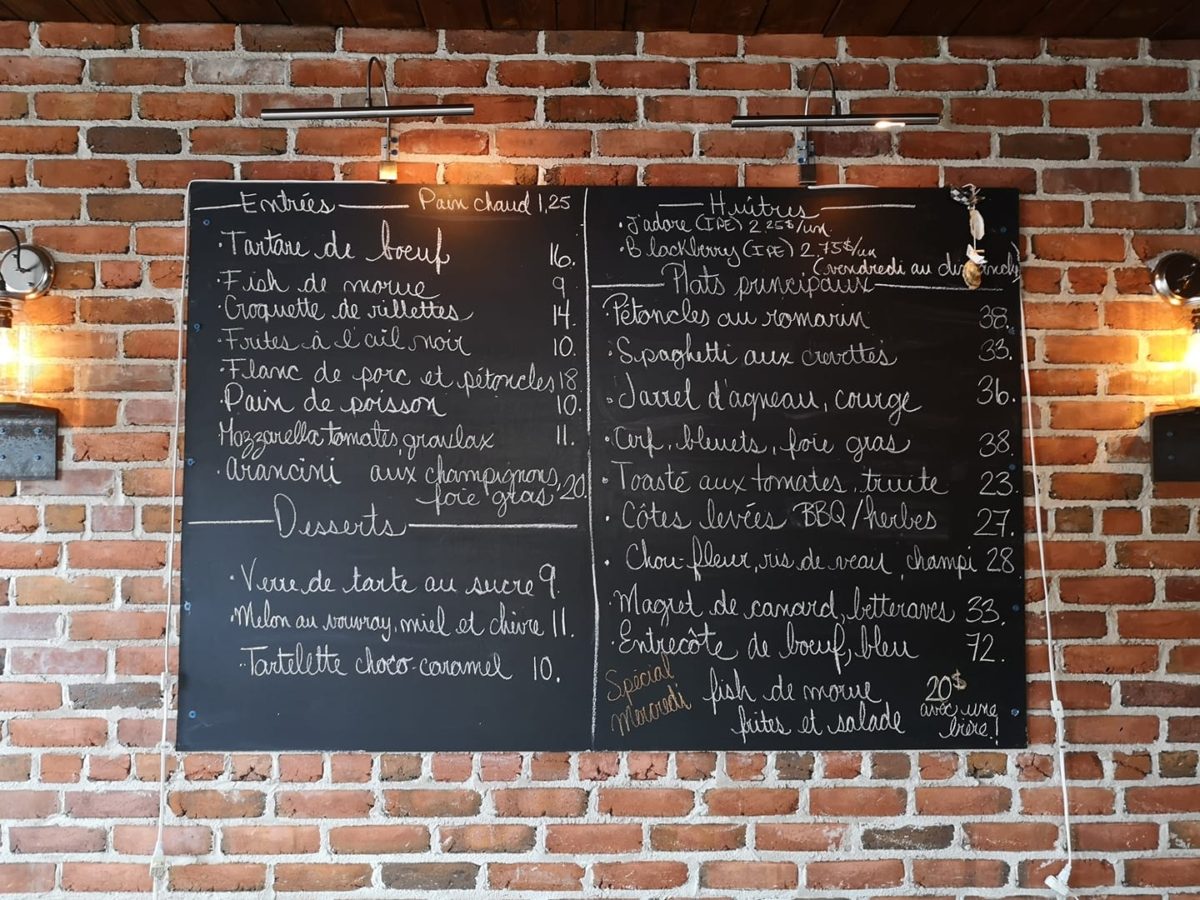 Entrées Pain chaud 1,25
· Tartare de boeuf 16.
· Fish de morue 9
· Croquette de rillettes 14.
· Frites à l'ail noir 10.
· Flanc de porc et pétoncles 18
· Pain de poisson 10.
Mozzarella tomates, gravlax 11.
· Arancini aux champignons,
foie gras 20.
Desserts
· Verre de tarte au sucre 9.
· Melon au vouvray, miel et chèvre 11.
· Tartelette choco-caramel 10.
Huîtres
· J'adore (IPE) 2 25$/un.
· Blackberry (IPE) 2 75$/un
(vendredi au dimanche)
Plats principaux
Pétoncles au romarin 38.
· Spaghetti aux crevettes 33.
· Jarret d'agneau, courge 36.
· Cerf, bleuets, foie gras 38.
· Toasté aux tomates, truite 23.
· Côtes levées BBQ/herbes 27.
· Chou-fleur, ris de veau, champi 28
· Magret de canard, betteraves 33.
· Entrecôte de boeuf, bleu 72.
Spécial
Mercredi
fish de morue
frites et salade
20$
avec une
bière!